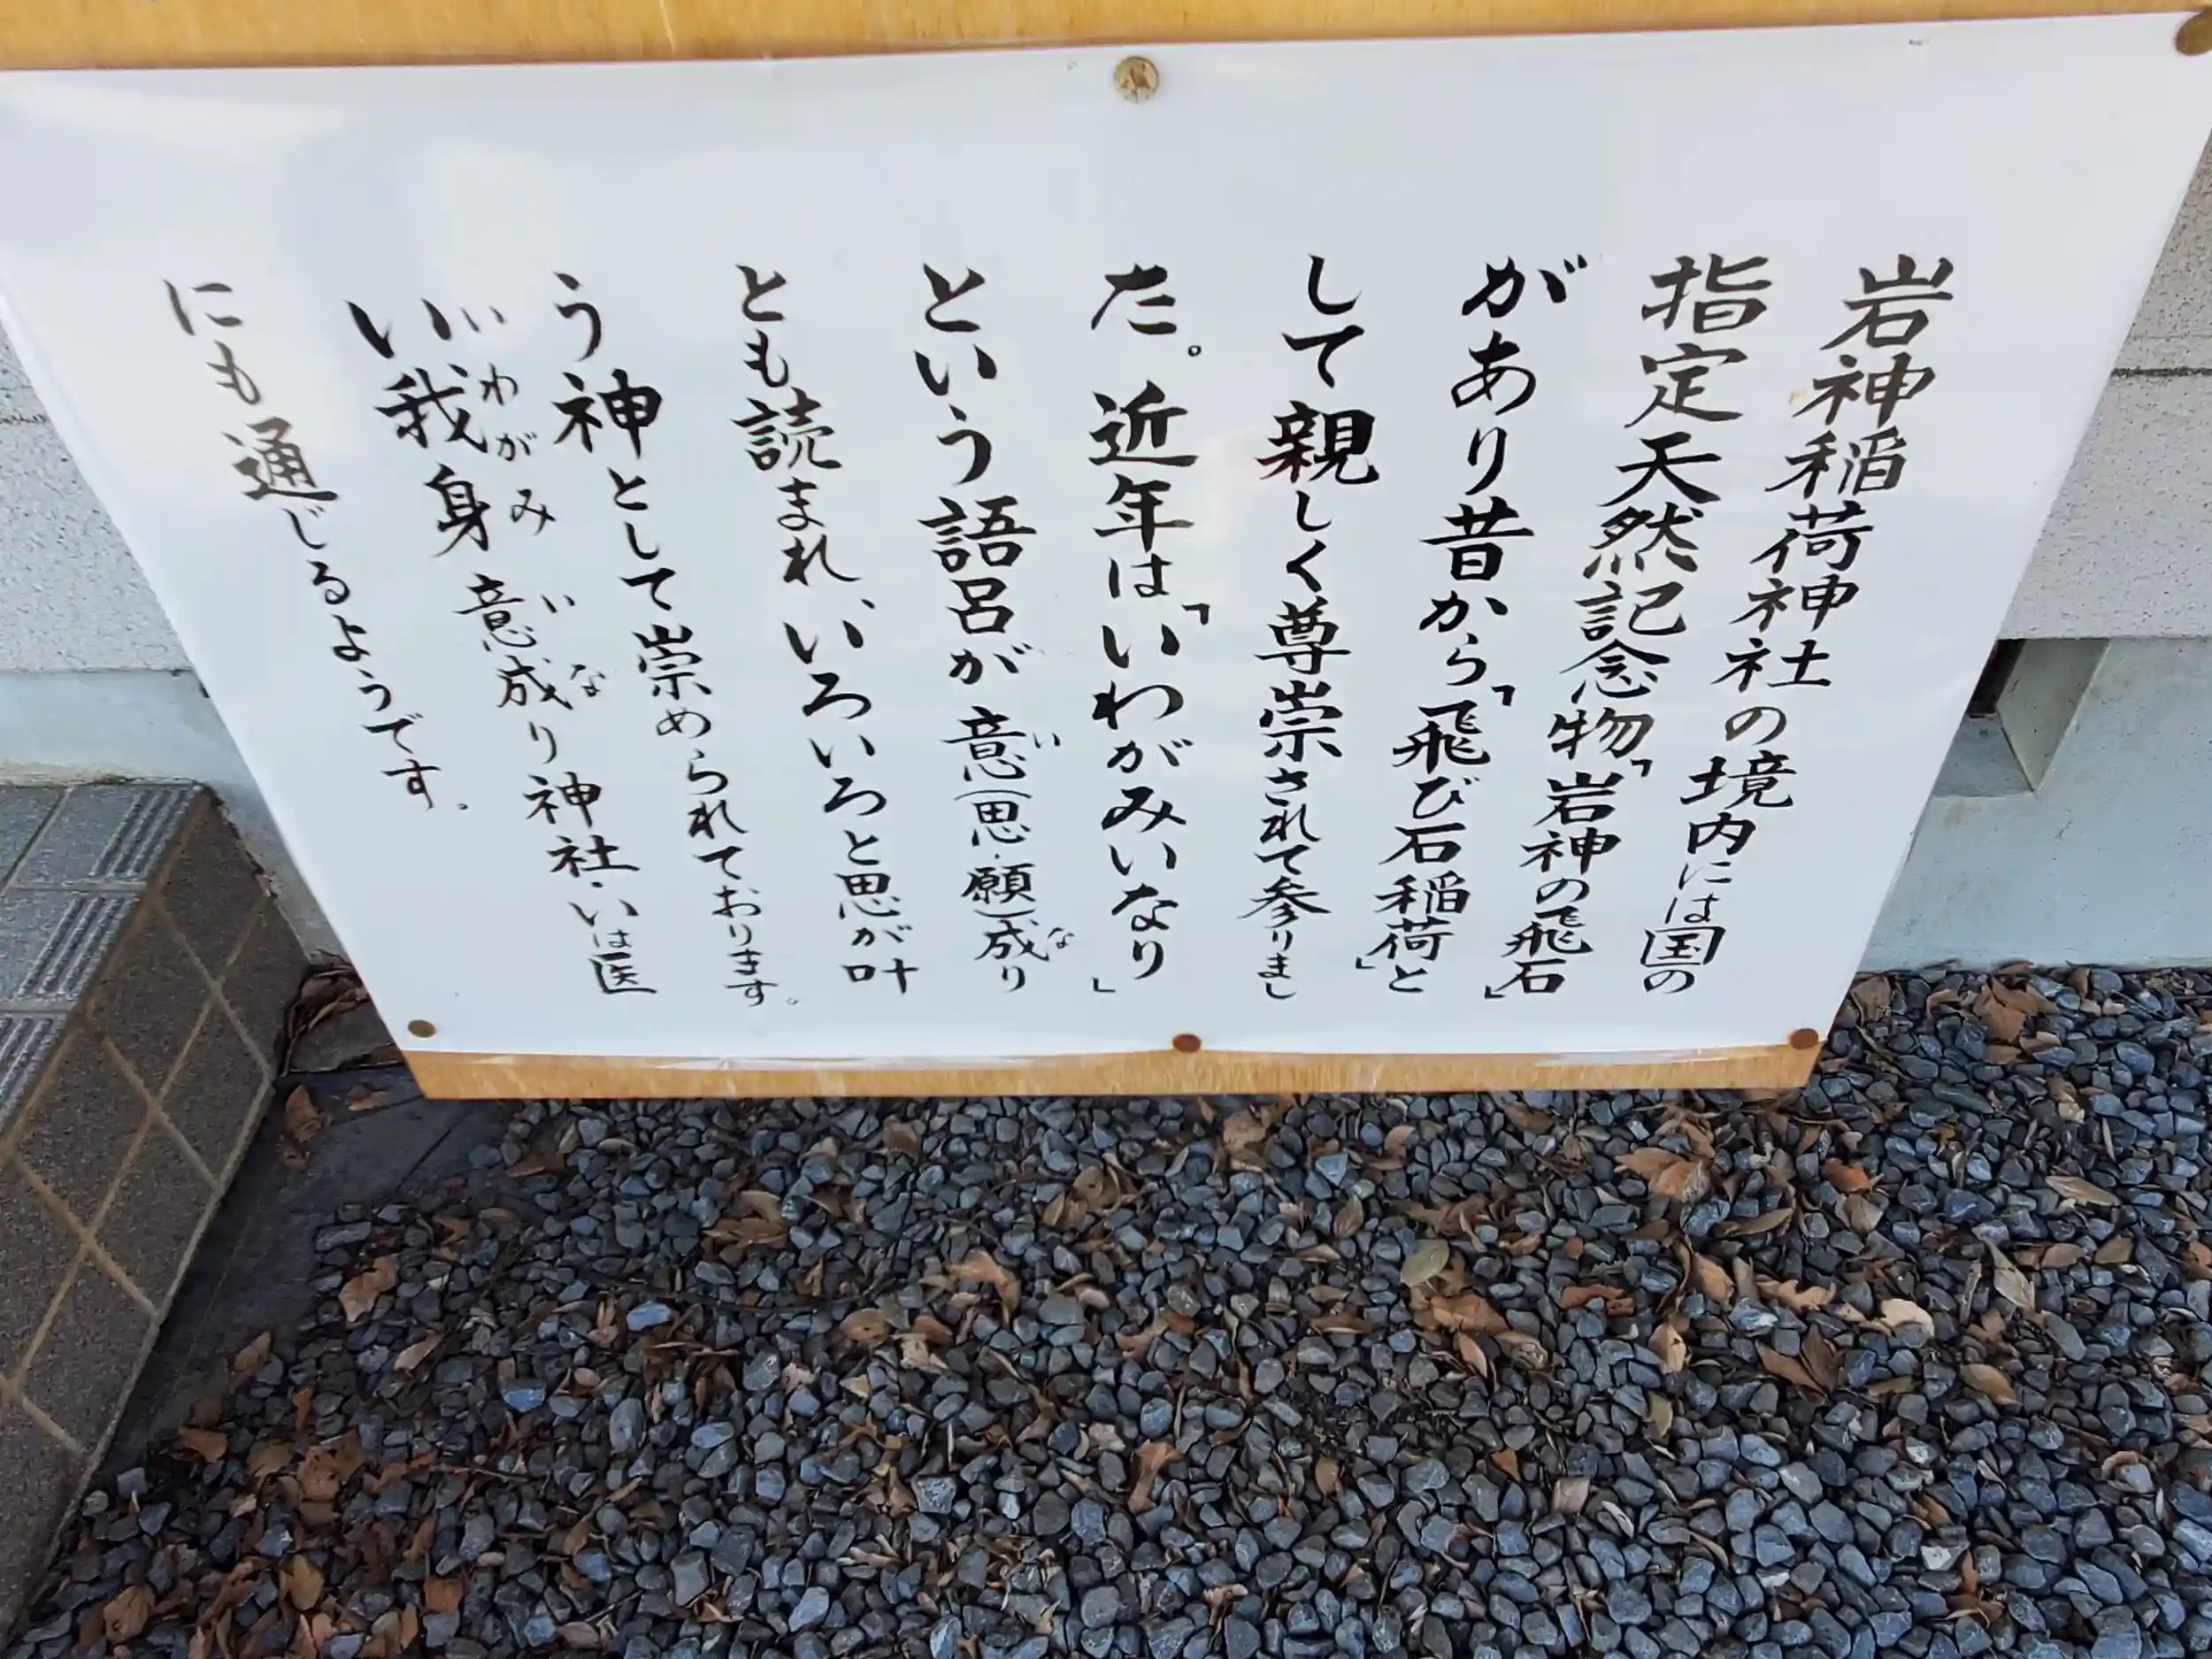 岩神稲荷神社の境内には国の
指定天然記念物「岩神の飛石」
があり昔から「飛び石稲荷」と
して親しく尊崇されて参りまし
た。近年は「いわがみいなり」
という語呂が意(思・願)成り
い な
とも読まれ、いろいろと思が叶
う神として崇められております。
い我身意成り神社・いは医
い わ が み い な
にも通じるようです。